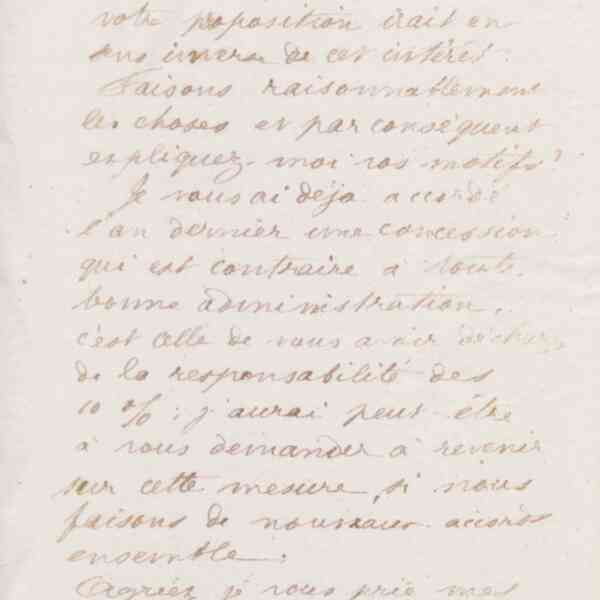 votre poposition irait en
sens inverse de cet intérêt.
Faisons raisonnablement
les choses et par conséquent
expliquez-moi vos motifs?
Je vous ai déja accordé
l'an dernier une concession
qui est contraire à toute
bonne administration,
c'est celle de vous avoir déchargé
de la responsabilité des
10 %; j'aurai peut être
à vous demander à revenir
sur cette mesure, si nous
faisons de nouveaux accords
ensemble.
Agréez je vous prie mes